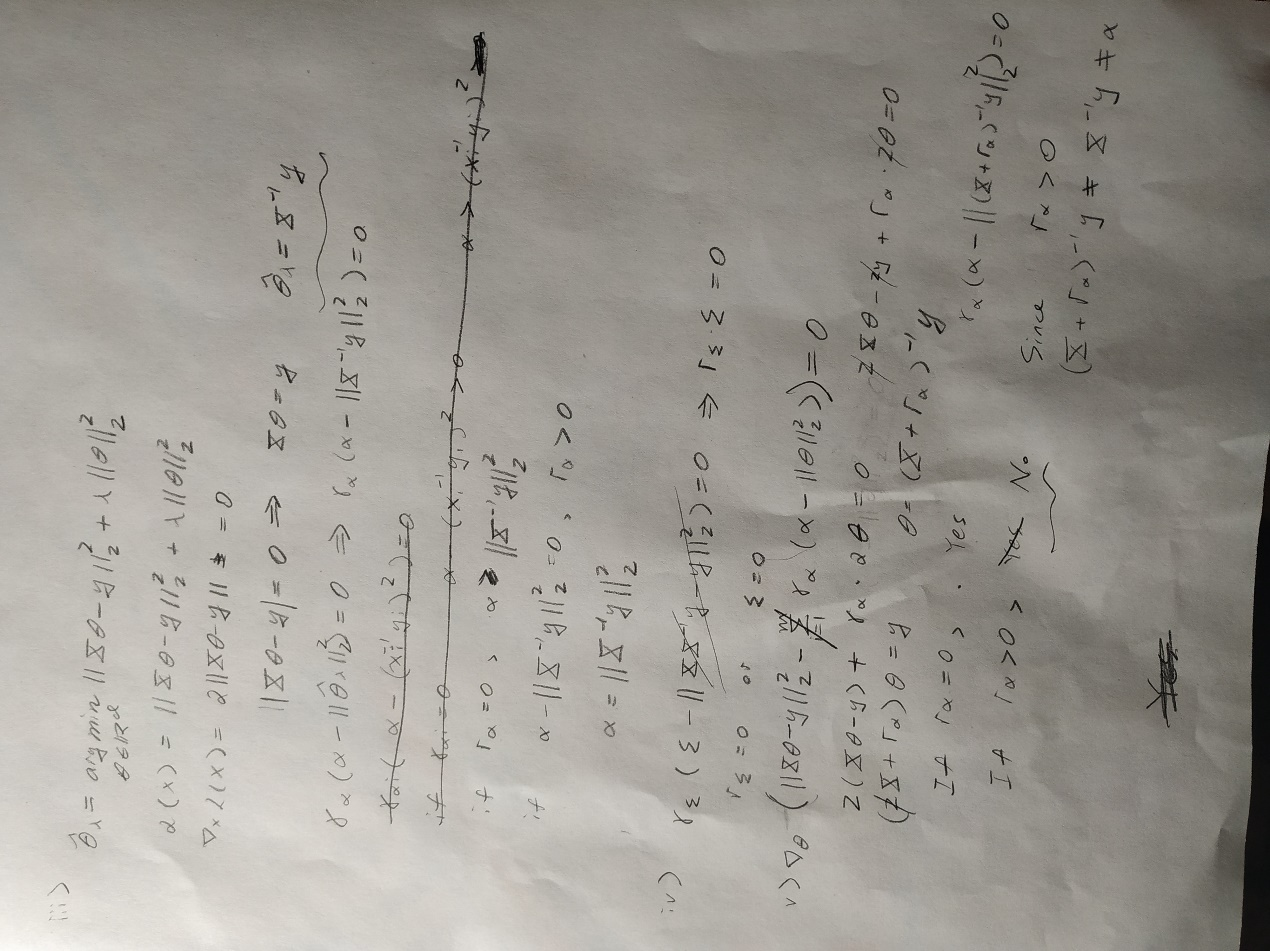 iii) θ̂_λ = argmin_{θ∈ℝ^d} ||Xθ-y||₂² + λ||θ||₂²
L(x) = ||Xθ-y||₂² + λ||θ||₂²
∇ₓL(x) = 2||Xθ-y|| = 0
||Xθ-y| = 0 ⇒ Xθ=y θ̂_λ = X⁻¹y
r_α(α-||θ̂_λ||₂²)=0 ⇒ r_α(α-||X⁻¹y||₂²)=0
r_{αi}(α-(x_i⁻¹y_i)²)=0
if r_{αi}=0 α-(x_i⁻¹y_i)²>0 α>(x_i⁻¹y_i)²
if r_α=0, α > ||X⁻¹y||₂²
if α-||X⁻¹y||₂²=0, r_α>0
α=||X⁻¹y||₂²
iv) r_Σ(Σ-||XX⁻¹y-y||₂²)=0 ⇒ r_Σ·Σ=0
r_Σ=0 or Σ=0
v) ∇_θ(||Xθ-y||₂² - r_α(α-||θ||₂²))=0
2(Xθ-y)+r_α·2θ=0 2Xθ-2y+r_α·2θ=0
(2X+r_α)θ=y θ=(X+r_α)⁻¹y
If r_α=0, Yes
r_α(α-||(X+r_α)⁻¹y||₂²)=0
If r_α>0, Yes No
Since r_α>0
(X+r_α)⁻¹y ≠ X⁻¹y ≠ α
Yes